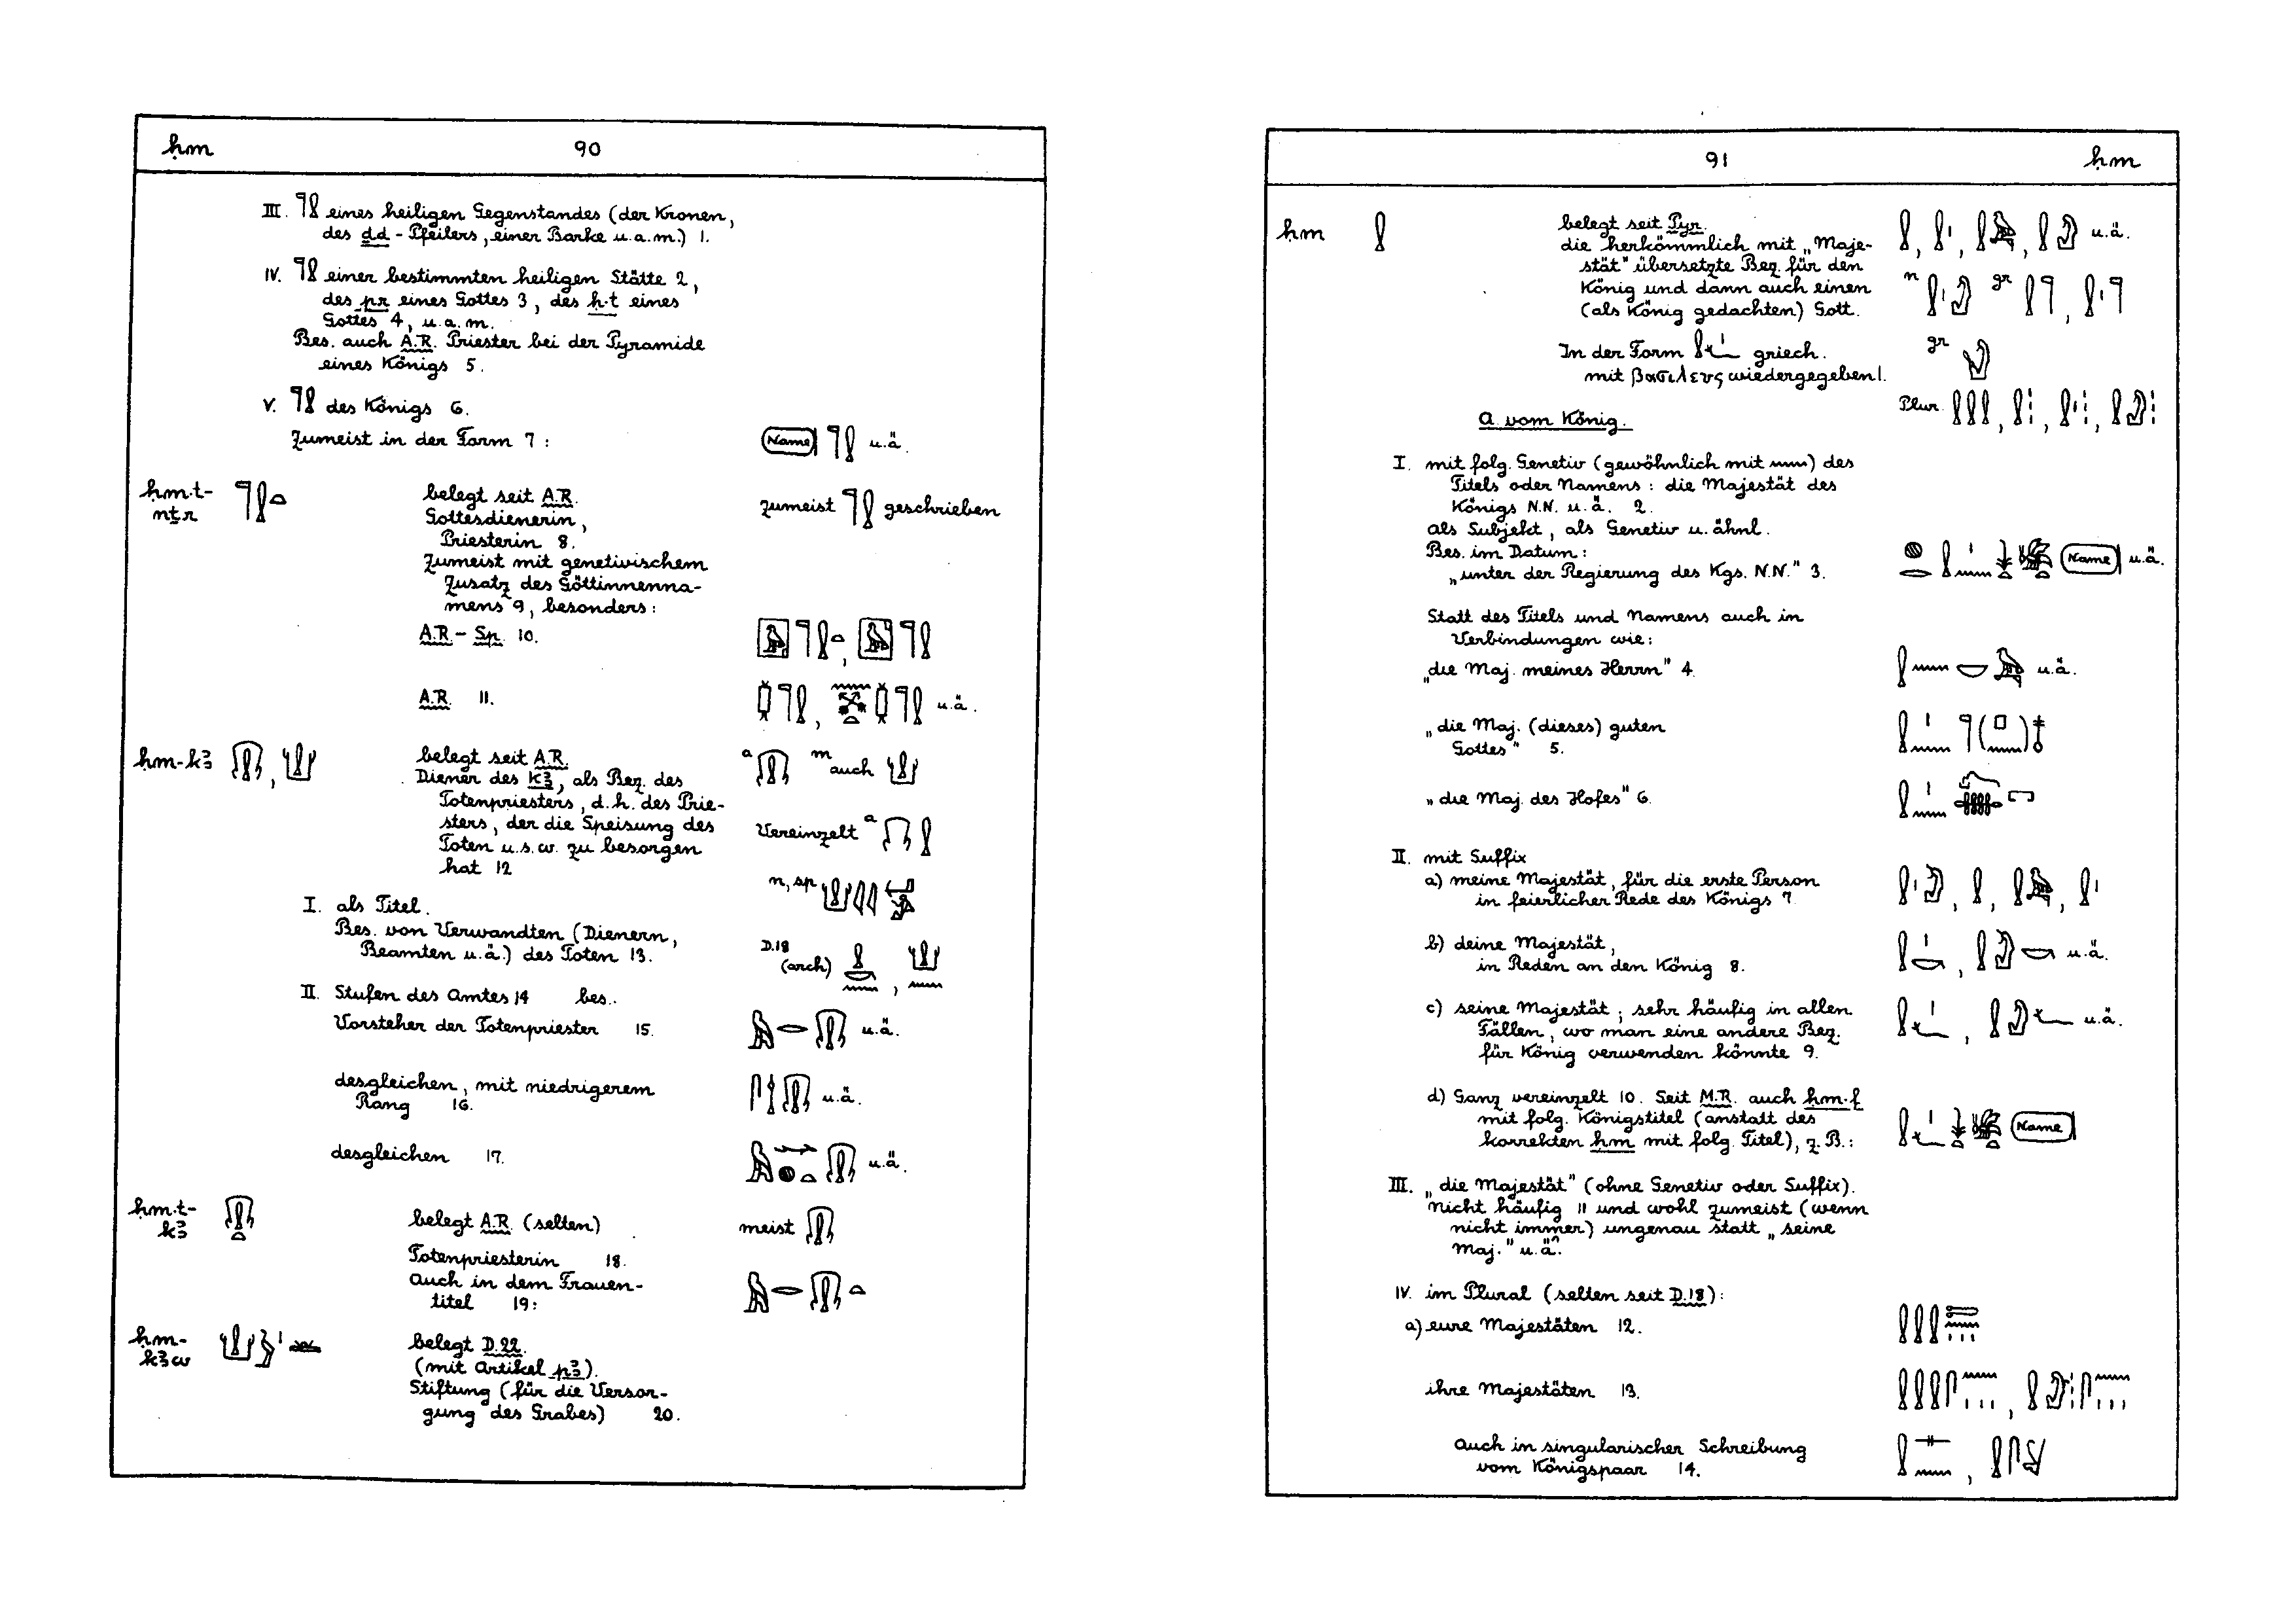 ḥm 90
III. 𓊹𓍛 eines heiligen Gegenstandes (der Kronen,
des ḏd-Pfeilers, einer Barke u.a.m.) 1.
IV. 𓊹𓍛 einer bestimmten heiligen Stätte 2,
des pr eines Gottes 3, des ḥ.t eines
Gottes 4, u.a.m.
Bes. auch A.R. Priester bei der Pyramide
eines Königs 5.
V. 𓊹𓍛 des Königs 6.
Zumeist in der Form 7: Name 𓊹𓍛 u.ä.
ḥm.t-
nṯr 𓊹𓍛𓏏
belegt seit A.R. zumeist 𓊹𓍛 geschrieben
Gottesdienerin,
Priesterin 8.
Zumeist mit genetivischem
Zusatz des Göttinnenna-
mens 9, besonders:
A.R.- Sp. 10.
A.R. 11. u.ä.
ḥm-kꜣ
belegt seit A.R. a m auch
Diener des kꜣ, als Bez. des
Totenpriesters, d.h. des Prie-
sters, der die Speisung des Vereinzelt a
Toten u.s.w. zu besorgen
hat 12
n, sp
I. als Titel.
Bes. von Verwandten (Dienern,
Beamten u.ä.) des Toten 13. D.18
(arch)
II. Stufen des Amtes 14 bes.:
Vorsteher der Totenpriester 15. u.ä.
desgleichen, mit niedrigerem
Rang 16. u.ä.
desgleichen 17. u.ä.
ḥm.t-
kꜣ
belegt A.R. (selten) meist
Totenpriesterin 18.
Auch in dem Frauen-
titel 19:
ḥm-
kꜣw
belegt D.22.
(mit Artikel pꜣ).
Stiftung (für die Versor-
gung des Grabes) 20.
91 ḥm
ḥm 𓍛
belegt seit Pyr. u.ä.
die herkömmlich mit „Maje-
stät" übersetzte Bez. für den
König und dann auch einen n gr
(als König gedachten) Gott.
In der Form 𓍛𓏤𓆑 griech. gr
mit βασιλευς wiedergegeben 1.
Plur.
A. vom König.
I. mit folg. Genetiv (gewöhnlich mit 𓈖) des
Titels oder Namens: die Majestät des
Königs N.N. u.ä. 2.
als Subjekt, als Genetiv u. ähnl.
Bes. im Datum:
„unter der Regierung des Kgs. N.N." 3. Name u.ä.
Statt des Titels und Namens auch in
Verbindungen wie:
„die Maj. meines Herrn" 4. u.ä.
„die Maj. (dieses) guten
Gottes" 5.
„die Maj. des Hofes" 6.
II. mit Suffix
a) meine Majestät, für die erste Person
in feierlicher Rede des Königs 7.
b) deine Majestät,
in Reden an den König 8. u.ä.
c) seine Majestät; sehr häufig in allen
Fällen, wo man eine andere Bez. u.ä.
für König verwenden könnte 9.
d) Ganz vereinzelt 10. Seit M.R. auch ḥm.f
mit folg. Königstitel (anstatt des
korrekten ḥm mit folg. Titel), z.B.: Name
III. „die Majestät" (ohne Genetiv oder Suffix).
Nicht häufig 11 und wohl zumeist (wenn
nicht immer) ungenau statt „seine
Maj." u.ä.
IV. im Plural (selten seit D.18):
a) eure Majestäten 12.
ihre Majestäten 13.
Auch in singularischer Schreibung
vom Königspaar 14.